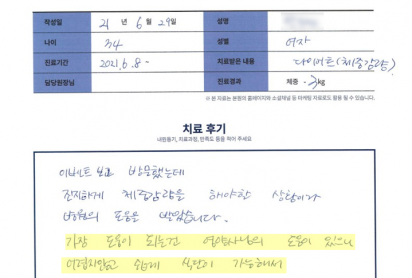 작성일 21 년 6 월 29일 성명
나이 34 성별 여자
진료기간 2021.6.8 - 치료받은 내용 다이어트(체중감량)
담당원장님 진료결과 체중 -3kg
※ 본 자료는 본원의 홈페이지와 소셜채널 등 마케팅 자료로도 활용 될 수 있습니다.
치료 후기
내원동기, 치료과정, 만족도 등을 적어 주세요
이벤트 보고 방문했는데
진지하게 체중감량을 해야한 상황이라
병원의 도움을 받았습니다.
가장 도움이 되는건 영양사님의 도움이 있으니
어렵지않고 쉽게 식단이 가능해서